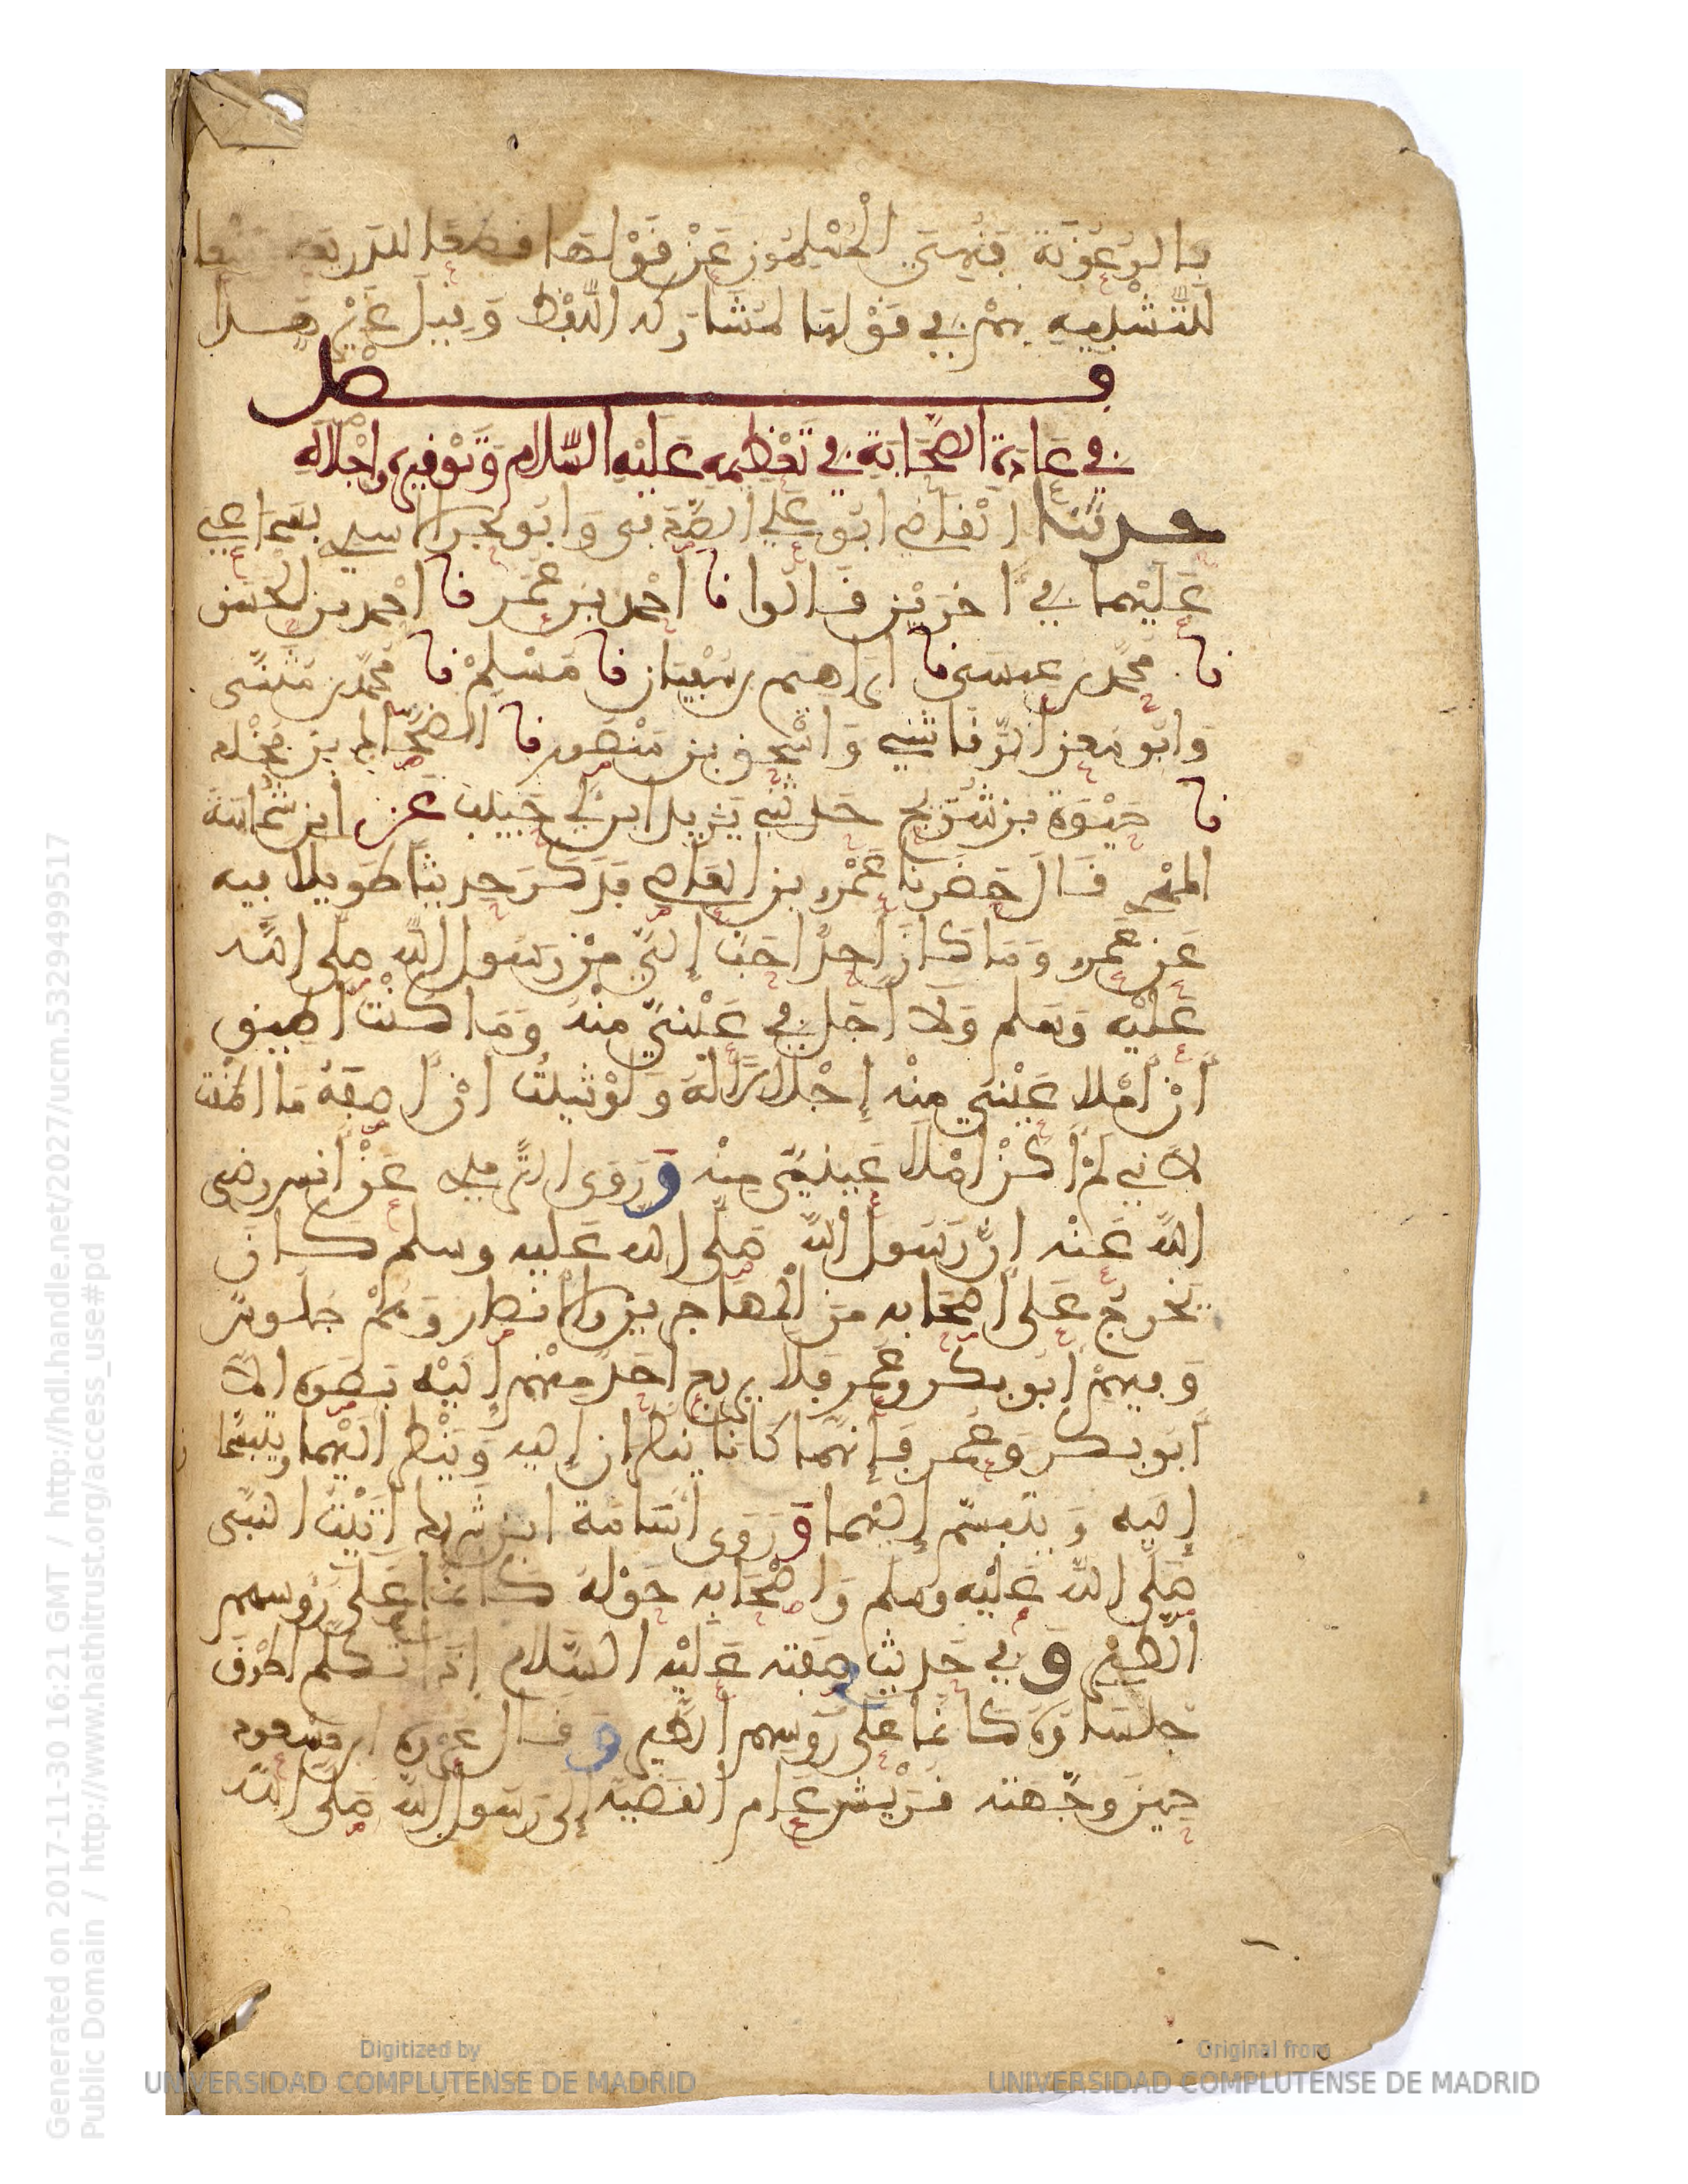 بالرعونة فنهي المسلمون عن قولها قطعا للذريعة ومنعا
للتشبيه بهم في قولها لمشاركة اللفظ وقيل غير هذا
فصل
في عادة الصحابة في تعظيمه عليه السلام وتوقيره وإجلاله
حدثنا القاضي ابو علي الصدفي وابو بحر الاسدي بسماعي
عليهما في اخرين قالوا نا احمد بن عمر نا احمد بن الحسن
نا محمد بن عيسى نا ابراهيم بن سفيان نا مسلم نا محمد بن مثنى
وابو معن الرقاشي واسحق بن منصور نا الضحاك بن مخلد
نا حيوة بن شريح حدثني يزيد ابن ابي حبيب عن ابن شماسة
المهري قال حضرنا عمرو بن العاصي فذكر حديثا طويلا فيه
عن عمرو وما كان احد احب إلي من رسول الله صلى الله
عليه وسلم ولا اجل في عيني منه وما كنت اطيق
أن أملا عيني منه إجلالا له ولو شيلت ان اصفه ما اطقت
لاني لم اكن املا عيني منه وروى الترمذي عن انس رضي
الله عنه ان رسول الله صلى الله عليه وسلم كان
يخرج على اصحابه من المهاجرين والانصار وهم جلوس
وفيهم ابو بكر وعمر فلا يرفع احد منهم إليه بصره الا
ابو بكر وعمر فإنهما كانا ينظران إليه وينظر اليهما ويتبسما
إليه ويتبسم إليهما وروى اسامة ابن شريك أتيت النبي
صلى الله عليه وسلم واصحابه حوله كانما على رؤسهم
الطير وفي حديث صفته عليه السلام إذا تكلم اطرق
جلساؤه كانما على رؤسهم الطير وقال عروة ابن مسعود
حين وجهته قريش عام القضية إلى رسول الله صلى الله
Generated on 2017-11-30 16:21 GMT / http://hdl.handle.net/2027/ucm.5329499517
Public Domain / http://www.hathitrust.org/access_use#pd
Digitized by
UNIVERSIDAD COMPLUTENSE DE MADRID
Original from
UNIVERSIDAD COMPLUTENSE DE MADRID